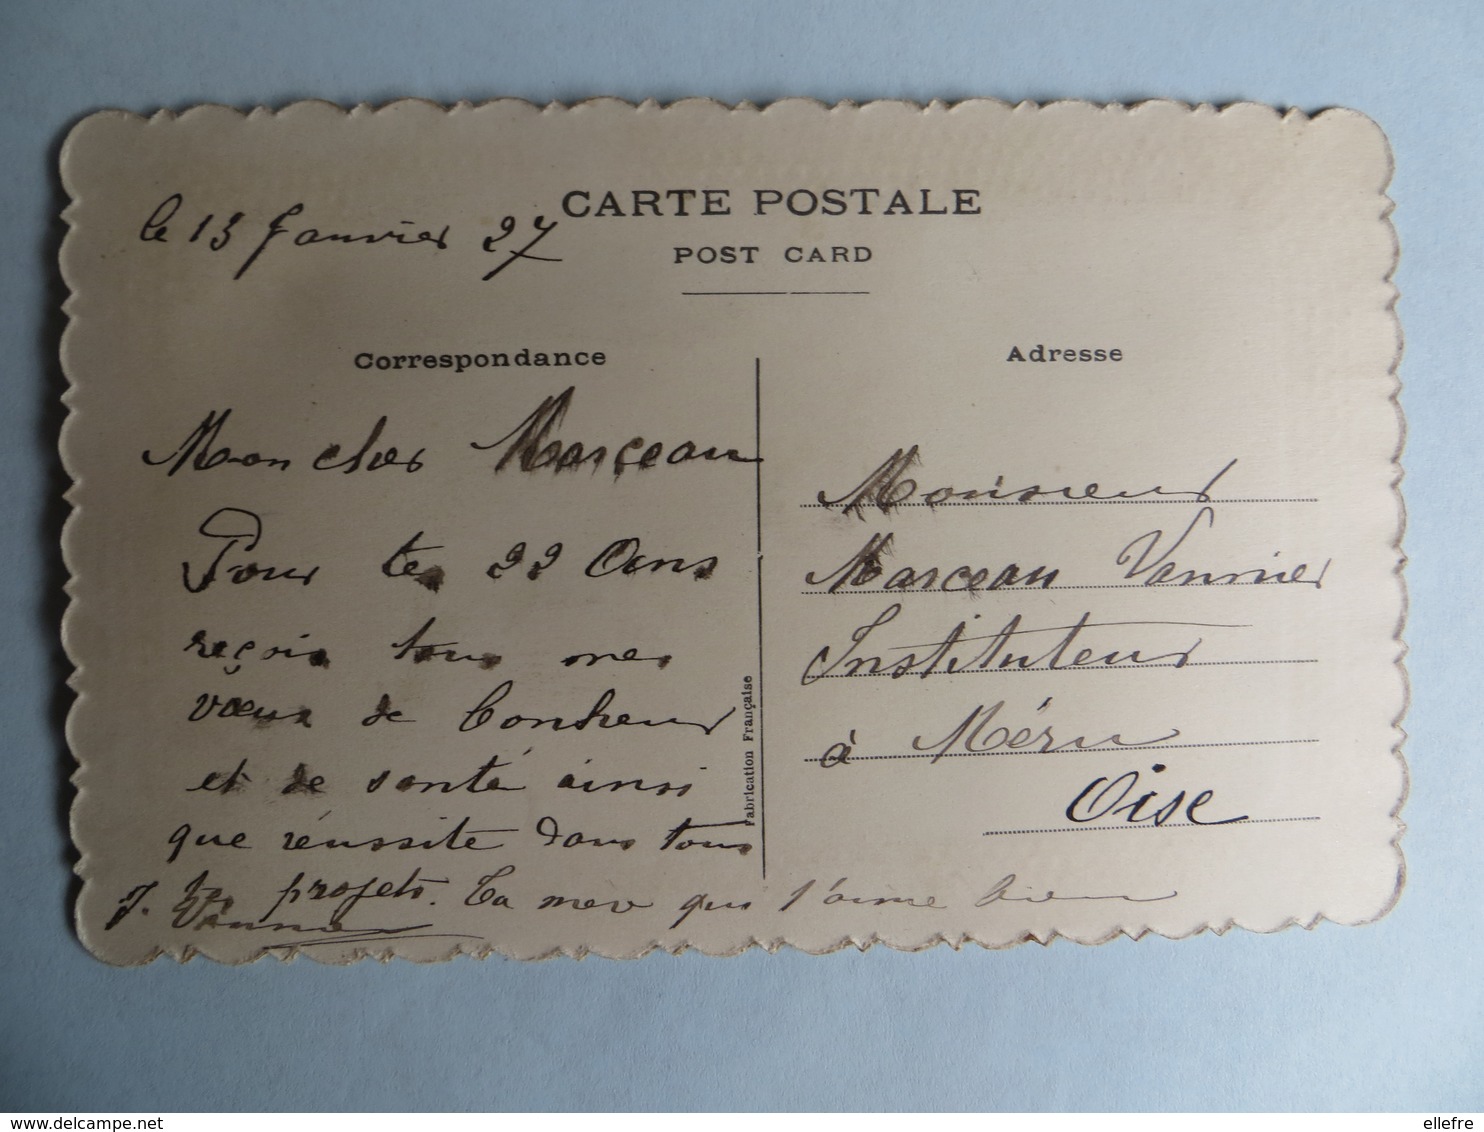 le 13 Janvier 27
CARTE POSTALE
POST CARD
Correspondance
Mon cher Marceau
Pour tes 22 Ans
reçois tous mes
vœux de bonheur
et de santé ainsi
que réussite dans tous
tes projets. Ta mère qui t'aime bien
J. Vannier
Fabrication Française
Adresse
Monsieur
Marceau Vannier
Instituteur
à Méru
Oise
www.delcampe.net
ellefre